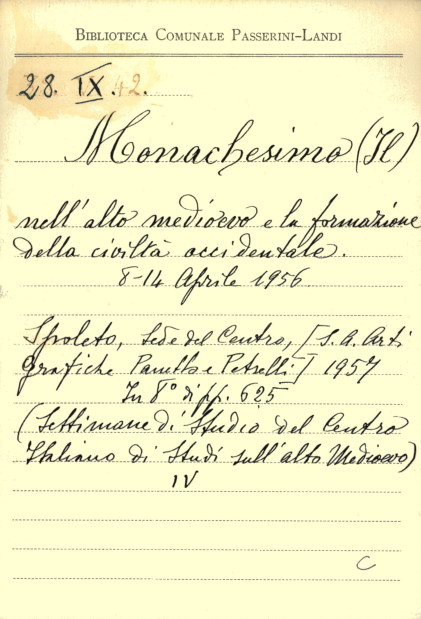 BIBLIOTECA COMUNALE PASSERINI-LANDI
28. IX. 42.
Monachesimo (Il)
nell'alto medioevo e la formazione
della civiltà occidentale.
8-14 Aprile 1956
Spoleto, Sede del Centro, [S. A. Arti
grafiche Panetto e Petrelli] 1957
In 8° di pp. 625
(Settimane di Studio del Centro
Italiano di Studi sull'alto Medioevo)
IV
C